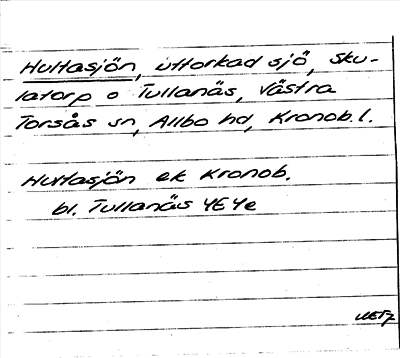 Hultasjön, uttorkad sjö, Sku-
latorp o Tullanäs, Västra
Torsås sn, Allbo hd, Kronob. l.
Hultasjön ek Kronob.
bl. Tullanäs 4E4e